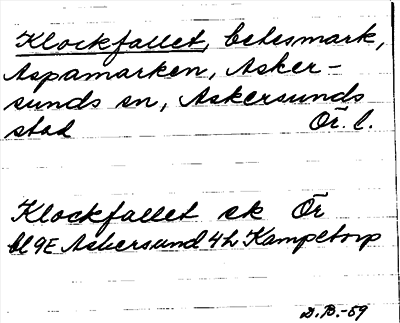 Klockfallet, betesmark,
Aspamarken, Asker-
sunds sn, Askersunds
stad Ör. l.
Klockfallet sk Ör
bl 9E Askersund 4h Kampetorp
D.B.-59